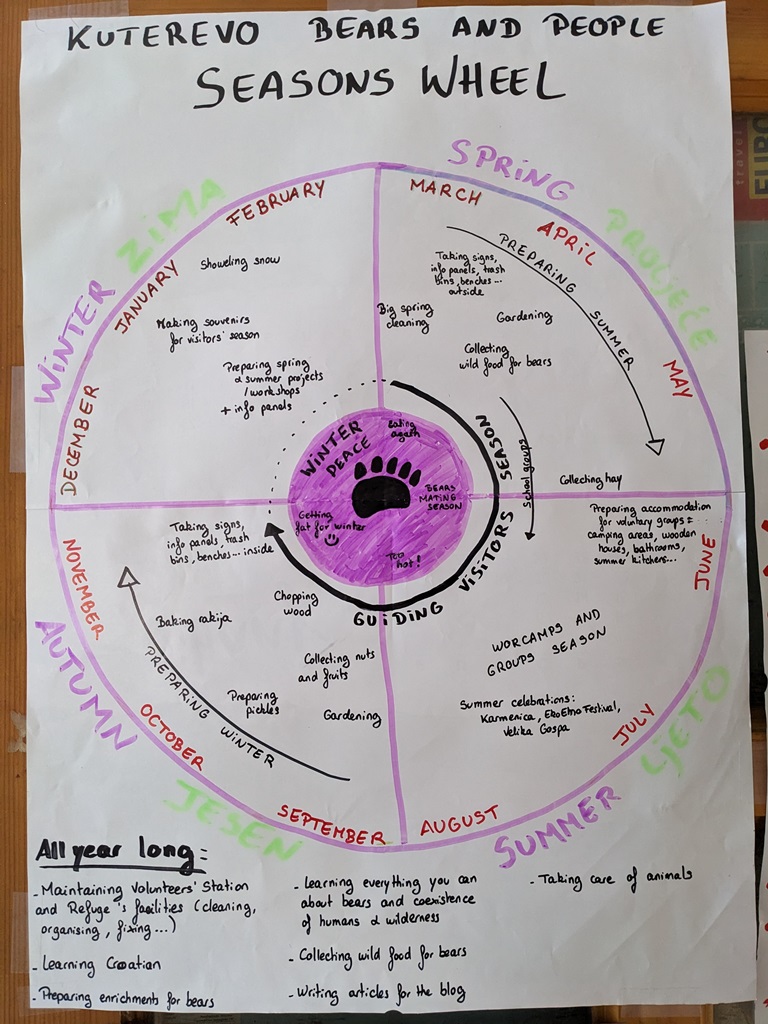 KUTEREVO BEARS AND PEOPLE
SEASONS WHEEL
WINTER
ZIMA
DECEMBER
JANUARY
FEBRUARY
Showeling snow
Making souvenirs
for visitors' season
Preparing spring
& summer projects
/ workshops
+ info panels
SPRING
PROLJEĆE
MARCH
APRIL
MAY
PREPARING SUMMER
Taking signs,
info panels, trash
bins, benches...
outside
Big spring
cleaning
Gardening
Collecting
wild food for bears
School groups
Collecting hay
WINTER
PEACE
Eating
again
BEARS
MATING
SEASON
Getting
fat for winter
Too
hot!
GUIDING VISITORS SEASON
Preparing accommodation
for voluntary groups =
camping areas, wooden
houses, bathrooms,
summer kitchens...
JUNE
JULY
AUGUST
SUMMER
LJETO
WORCAMPS AND
GROUPS SEASON
Summer celebrations:
Karmenica, EkoEtnoFestival,
Velika Gospa
Taking signs,
info panels, trash
bins, benches... inside
Chopping
wood
Baking rakija
Collecting nuts
and fruits
Preparing
pickles
Gardening
PREPARING WINTER
SEPTEMBER
OCTOBER
NOVEMBER
AUTUMN
JESEN
All year long:
- Maintaining Volunteers' Station
and Refuge's facilities (cleaning,
organising, fixing...)
- Learning Croatian
- Preparing enrichments for bears
- Learning everything you can
about bears and coexistence
of humans & wilderness
- Collecting wild food for bears
- Writing articles for the blog
- Taking care of animals
travel
EURO